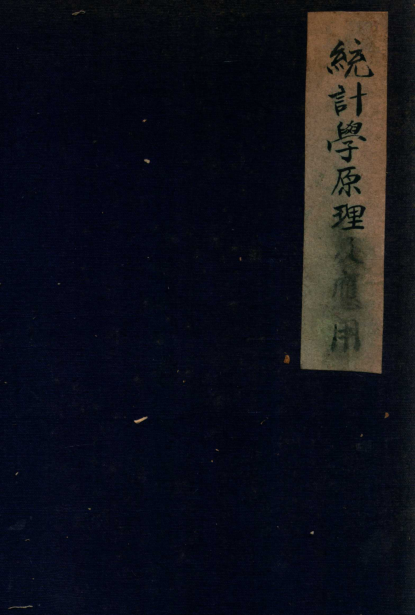 統計學原理及應用